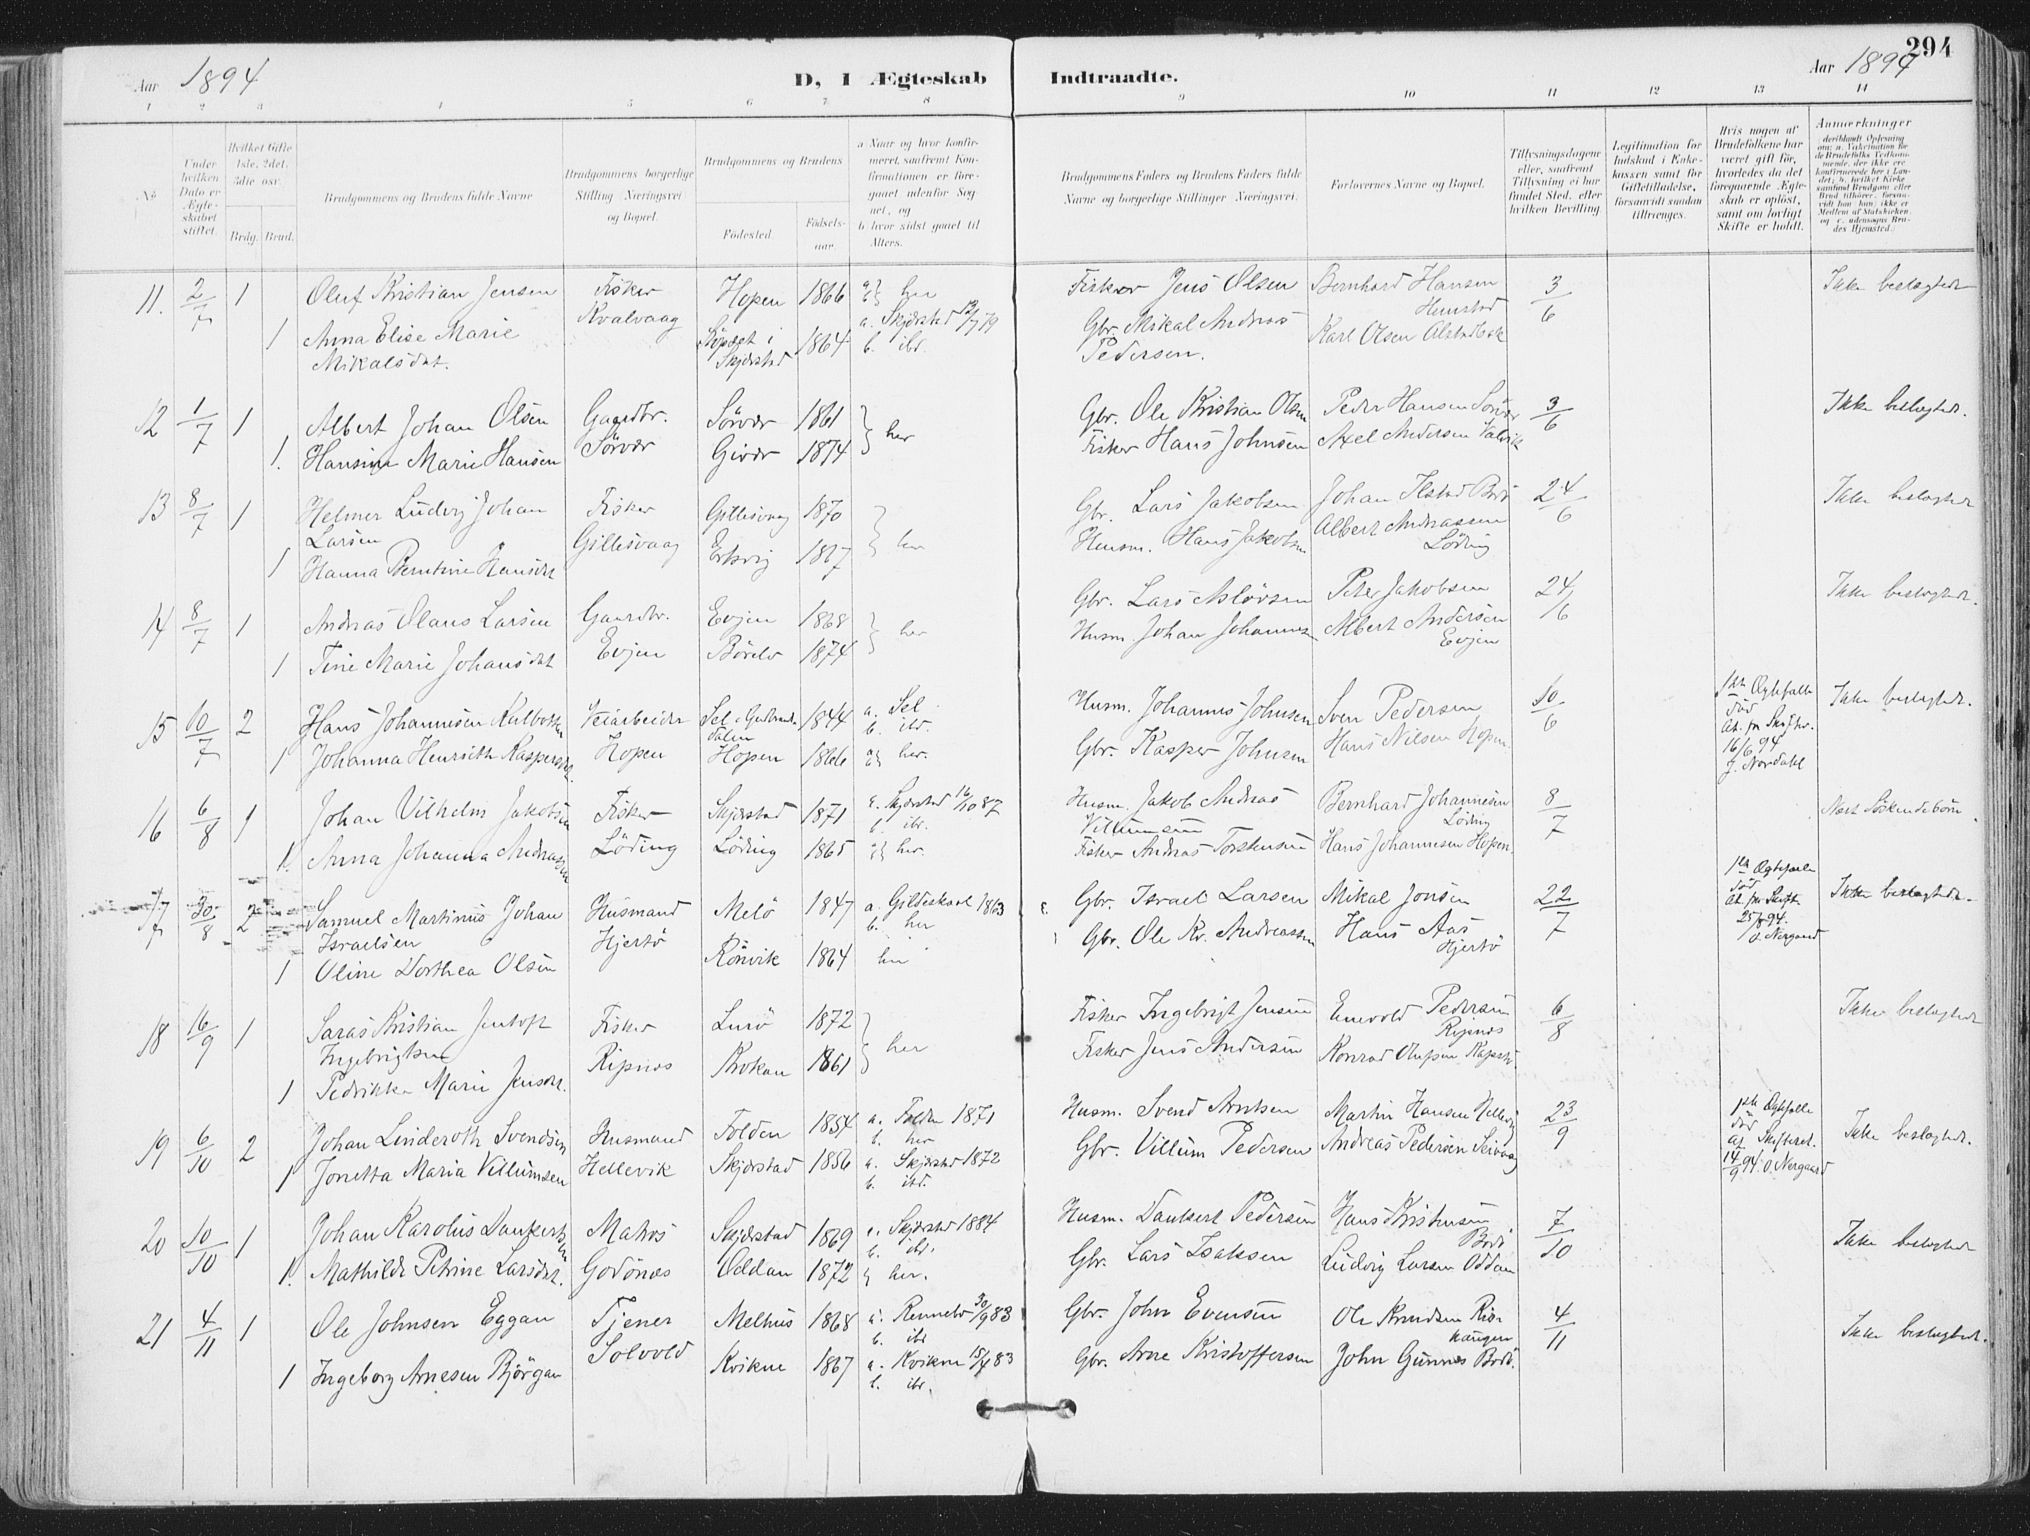 294
Aar 1894
D, I Ægteskab Indtraadte.
Aar 1894
1 2 3 4 5 6 7 8 9 10 11 12 13 14
No.
Under hvilken Dato er Ægteskabet stiftet.
Hvilket Gifte 1ste, 2det, 3die osv.
Brdg. Brud.
Brudgommens og Brudens fulde Navne
Brudgommens borgerlige Stilling Næringsvei og Bopæl.
Brudgommens og Brudens
Fødested. Fødselsaar.
a Naar og hvor konfirmeret, saafremt Konfirmationen er foregaaet udenfor Sognet, og
b hvor sidst gaaet til Alters.
Brudgommens Faders og Brudens Faders fulde Navne og borgerlige Stillinger Næringsvei.
Forlovernes Navne og Bopæl.
Tillysningsdagene eller, saafremt Tillysning ei har fundet Sted, efter hvilken Bevilling.
Legitimation for Indskud i Enkekassen samt for Giftetilladelse, forsaavidt saadan tiltrænges.
Hvis nogen af Brudefolkene har været gift før, hvorledes da det foregaaende Ægteskab er opløst, samt om lovligt Skifte er holdt.
Anmærkninger
11. 2/7 1 Oluf Kristian Jensen Fisker Hopen 1866 a b} her Fisker Jens Olsen Bernhard Hansen Hunstad 3/6 Ikke beslægtede
1 Anna Elise Marie Mikalsdat. Kvalvaag Skjerstad 1864 a. Skjerstad 13/7 79 b. ibd. Gbr. Mikal Andreas Pedersen. Karl Olsen
12 1/7 1 Albert Johan Olsen Gaardbr. Sörvær 1861 } her Gbr. Ole Kristian Olsen Peder Hansen Sörvær 3/6 Ikke beslægtede.
1. Hansine Marie Hansen Sörvær Givær 1874 Fisker Hans Johnsen Axel Andersen Valvik
13 8/7 1 Helmer Ludvig Johan Larsen Fisker Gillesvaag 1870 } her Gbr. Lars Jakobsen Johan Ilstad Bodö 24/6 Ikke beslægtede
1 Hanna Berntine Hansdat Gillesvaag Ersvig 1867 Husm. Hans Jakobsen Albert Andreassen Löding
14 8/7 1 Andreas Olaus Larsen Gaardbr. Evjen 1868 } her Gbr. Lars Aslövsen Peter Jakobsen 24/6 Ikke beslægtede.
1 Tine Marie Johansdat Evjen Börelv 1874 Husm. Johan Johannesen Albert Andersen Evjen
15 10/7 2 Hans Johannesen Kalbakken Veiarbeider Sel i Gudbrandsdalen 1844 a. Sel b. ibd. Husm. Johannes Johnsen Sven Pedersen 10/6 1ste Ægtefælle död At. fr Skifter. 16/6 94 J. Nordahl Ikke beslægtede.
1 Johanna Henriette Kaspersdat. Hopen Hopen 1866 a b} her. Gbr. Kasper Johnsen Hans Nilsen Hopen
16 6/8 1 Johan Vilhelm Jakobsen Fisker Skjerstad 1871 a. Skjerstad 16/10 87 b. ibd. Husm. Jakob Andreas Villumsen Bernhard Johannesen Löding 8/7 Næst Söskendebörn.
1. Anna Johanna Andreassen Löding Löding 1865 a b} her. Fisker Andreas Torstensen Hans Johannesen Hopen.
17 30/8 2 Samuel Martinus Johan Israelsen Husmand Melö 1847 a. Gildeskaal 1863 b. her Gbr. Israel Larsen Mikal Jonsen 22/7 1ste Ægtefælle död At. fra Skifter. 25/8 94. O. Nergaard Ikke beslægtede.
1 Oline Dorthea Olsen Hjertö Rönvik 1864 her Gbr. Ole Kr. Andreassen Hans Aas Hjertö
18 16/9 1 Saras Kristian Jentoft Ingebrigtsen Fisker Lurö 1872 } her Fisker Ingebrigt Jensen Enevold Pedersen Ripnes 6/8 Ikke beslægtede
1 Pedrikke Marie Jensdat. Ripnes Krokan 1861 Fisker Jens Andersen Konrad Olufsen
19 6/10 2 Johan Linderoth Svendsen Husmand Folden 1854 a. Folden 1871 b. her Husm. Svend Arntsen Martin Hansen Hellevig 23/9 1ste Ægtefælle död At. Skifteret. 14/9 94. O. Nergaard Ikke beslægtede.
1 Jonetta Maria Villumsen Hellevik Skjerstad 1856 a. Skjerstad 1872 b. ibd. Gbr. Villum Pedersen Andreas Pedersen Seivaag
20 10/10 1 Johan Karolius Dankertsen Matros Skjerstad 1869 a. Skjerstad 1884 b. ibd. Husm. Dankert Pedersen Hans Kristensen Bodö 7/10 Ikke beslægtede
1. Mathilde Petrine Larsdat. Godönes Oddan 1872 } her. Gbr. Lars Isaksen Ludvig Larsen Oddan
21 4/11 1 Ole Johnsen Eggan Tjener Melhus 1868 a. Rennebo 30/9 83 b. ibd Gbr. John Evensen Ole Knudsen Rishaugen 4/11 Ikke beslægtede.
1 Ingeborg Arnesen Björgan Solvold Kvikne 1867 a. Kvikne 15/4 83 b. ibd. Gbr. Arne Kristoffersen John Gunnes Bodö.